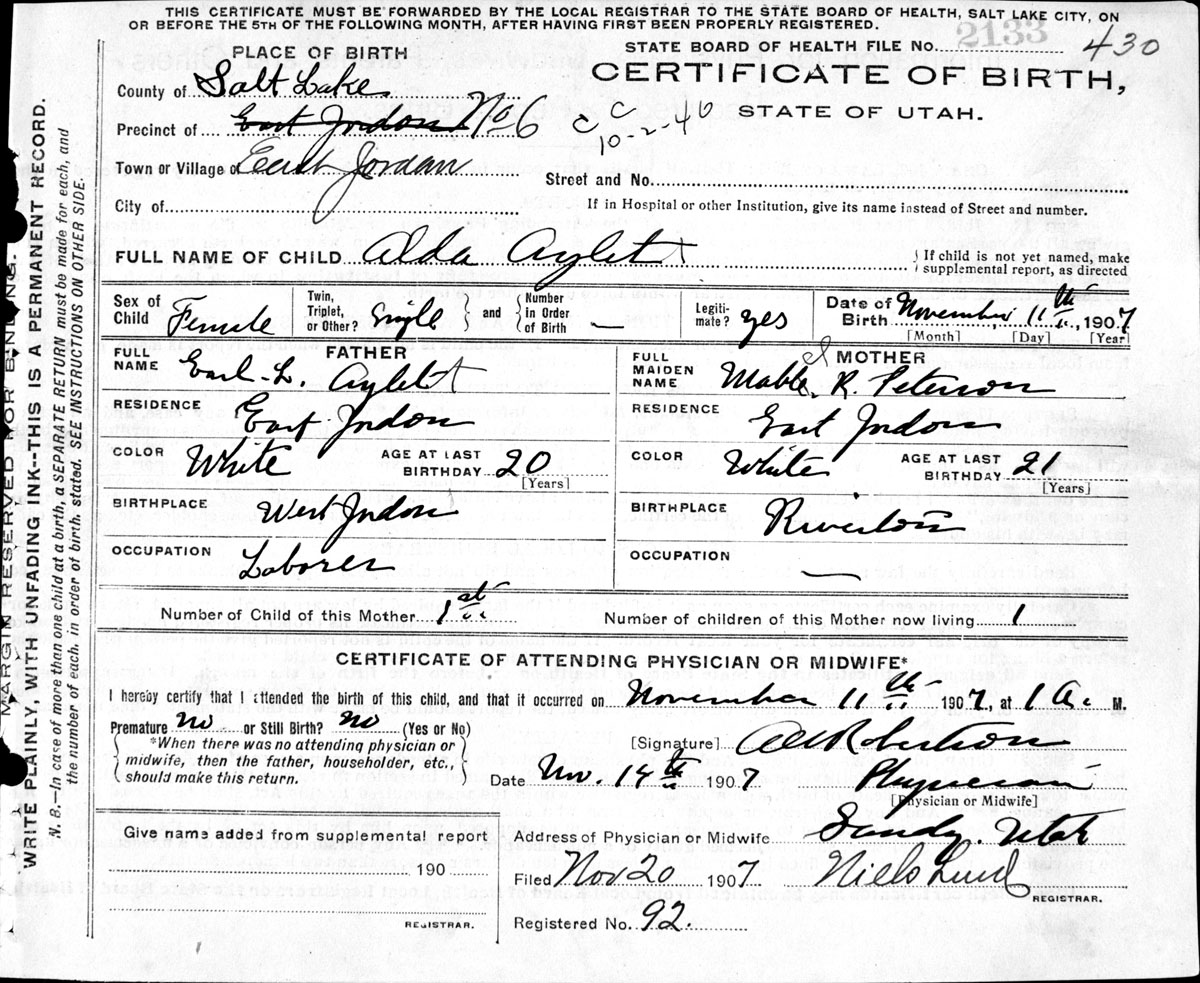 THIS CERTIFICATE MUST BE FORWARDED BY THE LOCAL REGISTRAR TO THE STATE BOARD OF HEALTH, SALT LAKE CITY, ON
OR BEFORE THE 5TH OF THE FOLLOWING MONTH, AFTER HAVING FIRST BEEN PROPERLY REGISTERED.
PLACE OF BIRTH
STATE BOARD OF HEALTH FILE NO. 2133 430
CERTIFICATE OF BIRTH,
STATE OF UTAH.
County of Salt Lake
Precinct of East Jordon No 6
C C
10-2-40
Town or Village of East Jordan
Street and No.
City of
If in Hospital or other Institution, give its name instead of Street and number.
FULL NAME OF CHILD Alda Aylet
If child is not yet named, make
supplemental report, as directed
Sex of Child Female
Twin, Triplet, or Other? Single
and
Number in Order of Birth —
Legitimate? yes
Date of Birth November 11th, 1907
[Month] [Day] [Year]
FATHER
FULL NAME Earl. L. Aylet
RESIDENCE East Jordon
COLOR White AGE AT LAST BIRTHDAY 20
[Years]
BIRTHPLACE West Jordon
OCCUPATION Laborer
MOTHER
FULL MAIDEN NAME Mable R. Peterson
RESIDENCE East Jordon
COLOR White AGE AT LAST BIRTHDAY 21
[Years]
BIRTHPLACE Riverton
OCCUPATION —
Number of Child of this Mother 1st Number of children of this Mother now living 1
CERTIFICATE OF ATTENDING PHYSICIAN OR MIDWIFE*
I hereby certify that I attended the birth of this child, and that it occurred on November 11th 1907, at 1 a. M.
Premature no or Still Birth? no (Yes or No)
*When there was no attending physician or
midwife, then the father, householder, etc.,
should make this return.
[Signature] Robertson
Date Nov. 14th 1907 Physician
[Physician or Midwife]
Give name added from supplemental report
190
REGISTRAR.
Address of Physician or Midwife Sandy. Utah
Filed Nov 20 1907 Niels Lind
REGISTRAR.
Registered No. 92.
MARGIN RESERVED FOR BINDING.
WRITE PLAINLY, WITH UNFADING INK--THIS IS A PERMANENT RECORD.
N. B.—In case of more then one child at a birth, a SEPARATE RETURN must be made for each, and
the number of each, in order of birth, stated. SEE INSTRUCTIONS ON OTHER SIDE.